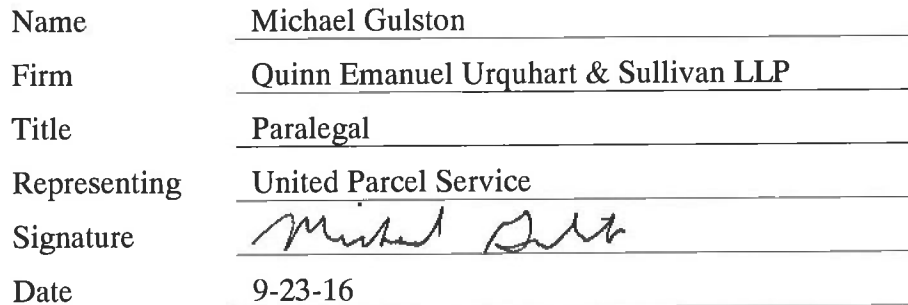 Name Michael Gulston
Firm Quinn Emanuel Urquhart & Sullivan LLP
Title Paralegal
Representing United Parcel Service
Signature Michael Gulston
Date 9-23-16